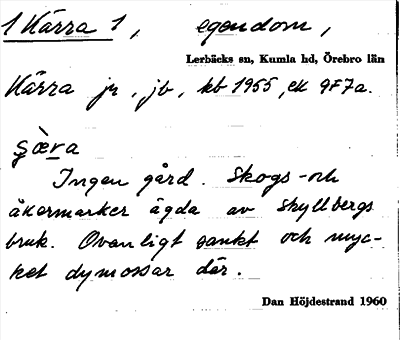 1 Kärra 1, egendom,
Lerbäcks sn, Kumla hd, Örebro län
Kärra jr, jb, kb 1955, ek 9F7a.
çæ̀ra
Ingen gård. Skogs- och
åkermarker ägda av Skyllbergs
bruk. Ovanligt sankt och myc-
ket dymossar där.
Dan Höjdestrand 1960